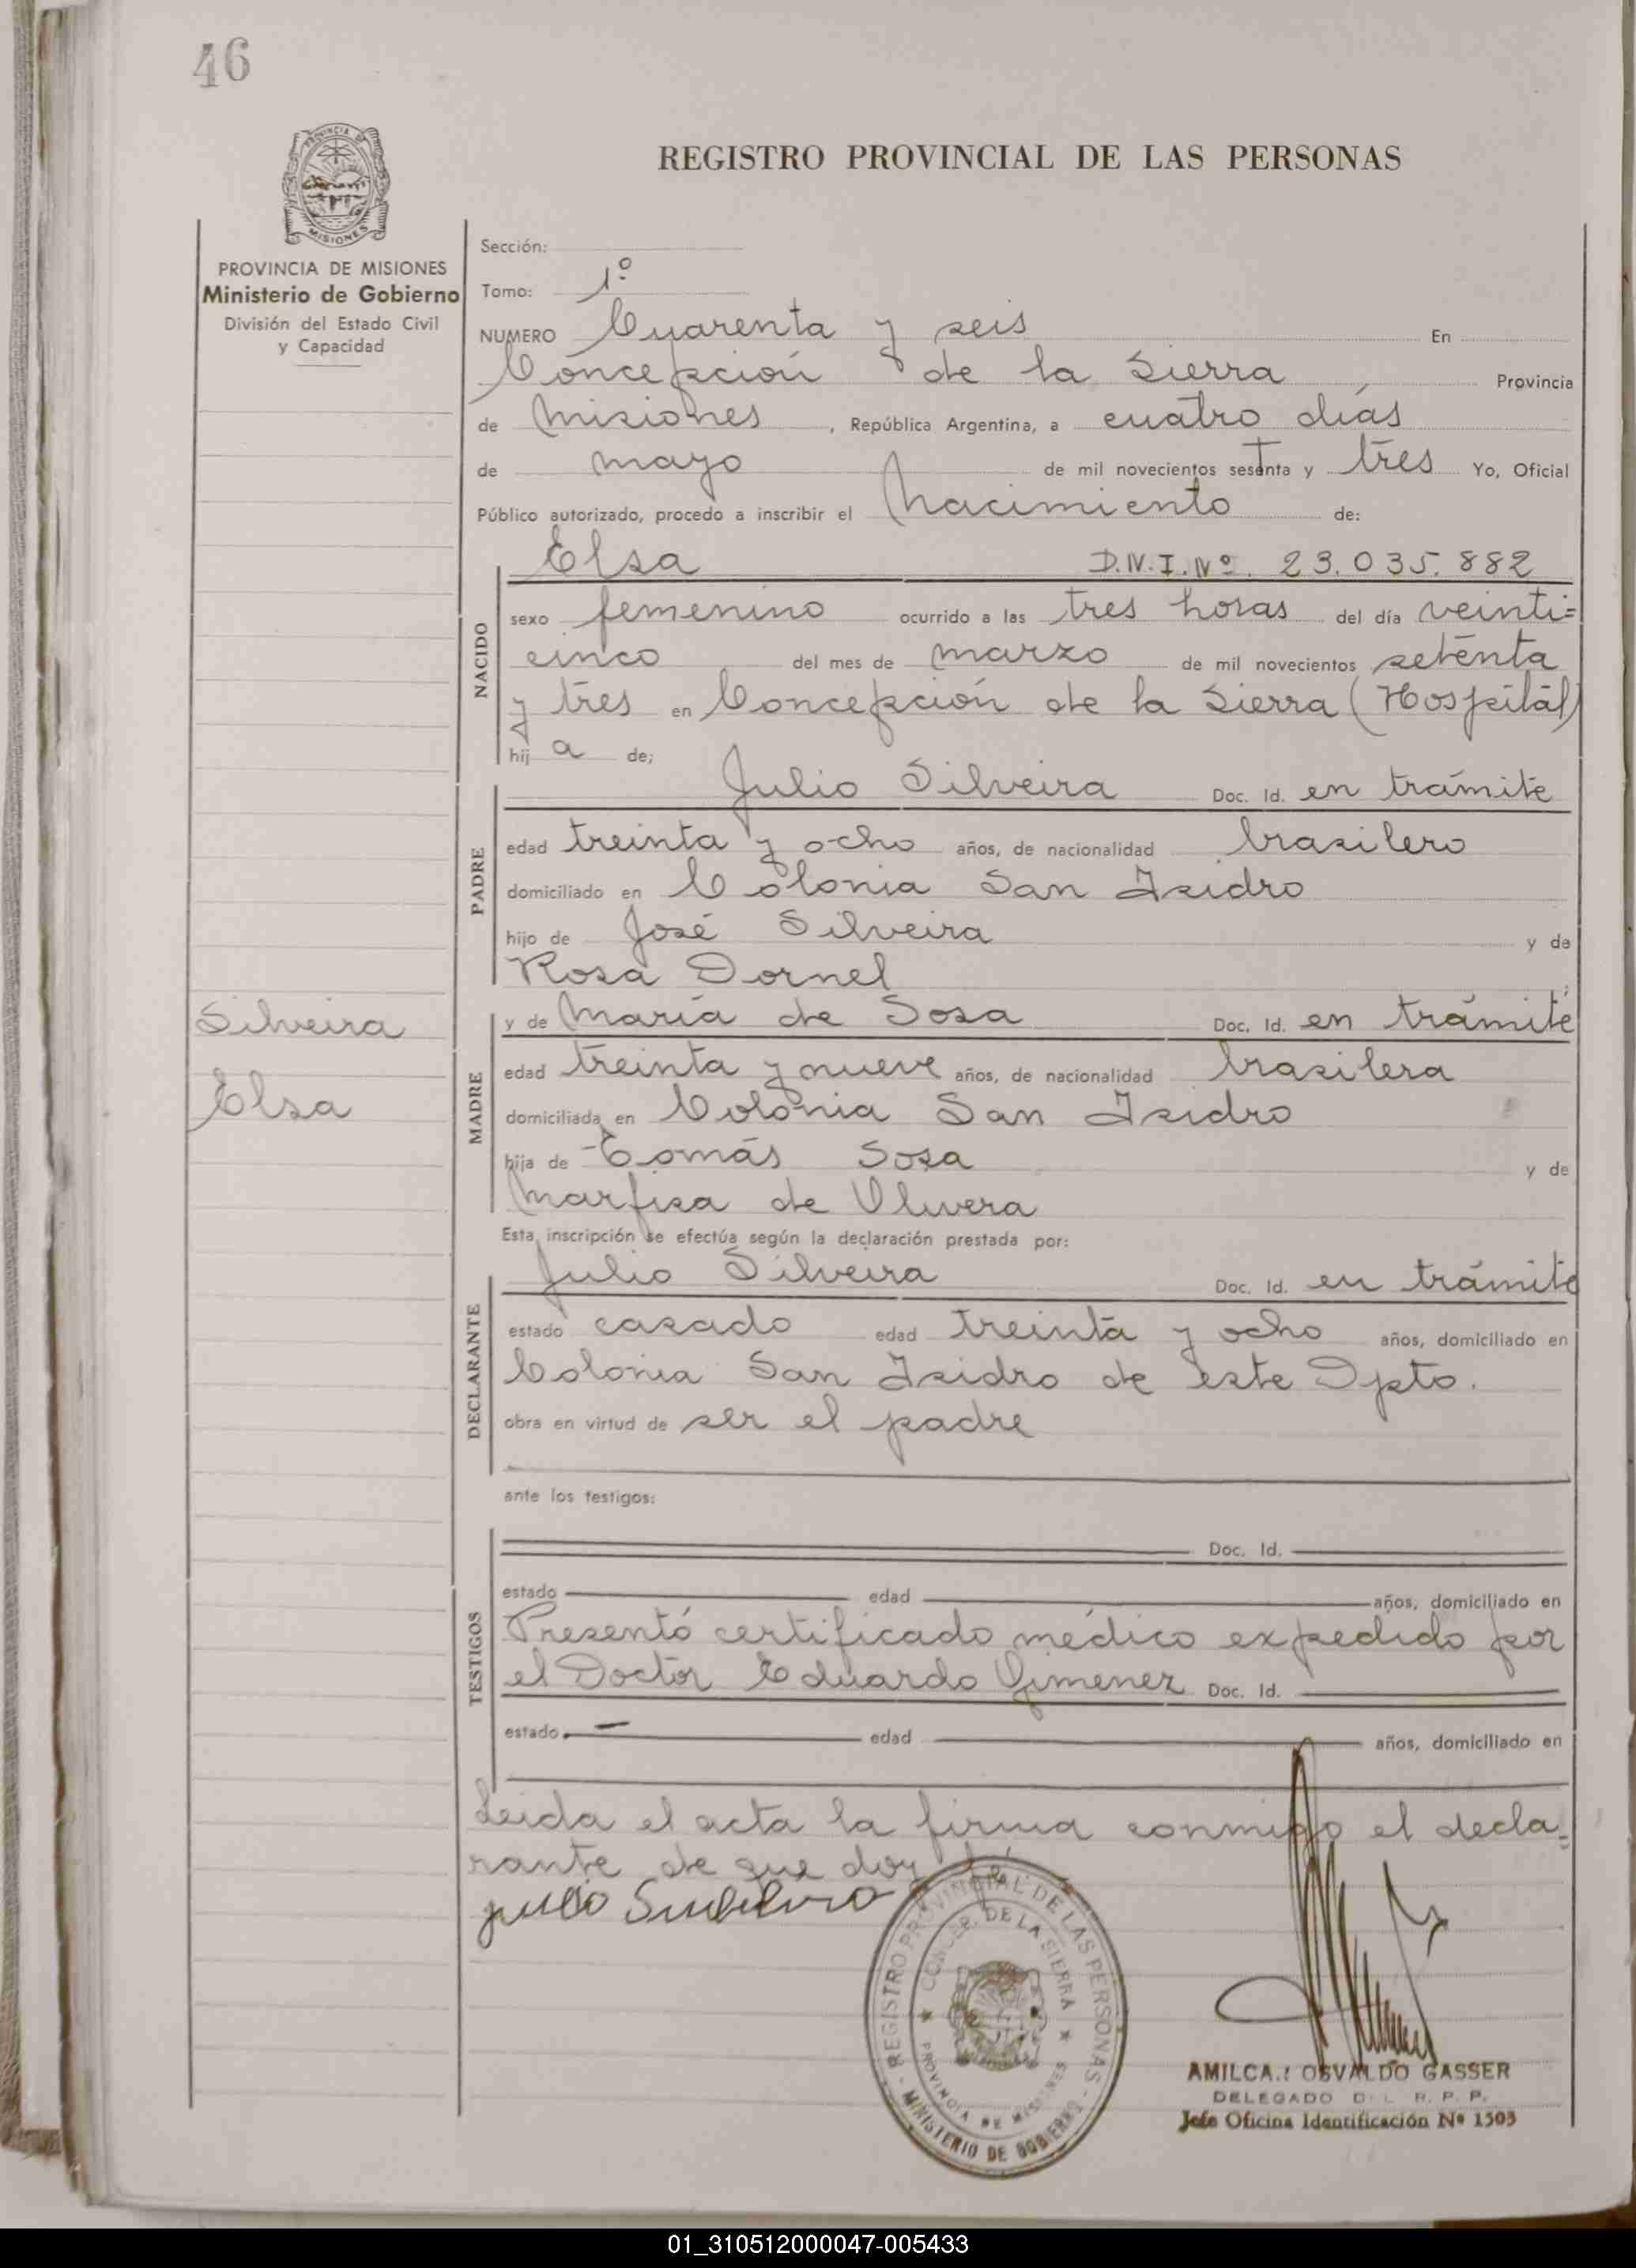 46
REGISTRO PROVINCIAL DE LAS PERSONAS
PROVINCIA DE MISIONES
MISIONES
PROVINCIA DE MISIONES
Ministerio de Gobierno
División del Estado Civil
y Capacidad
Sección:
Tomo: 1º
NUMERO Cuarenta y seis En
Concepción de la Sierra Provincia
de Misiones, República Argentina, a cuatro días
de mayo de mil novecientos setenta y tres Yo, Oficial
Público autorizado, procedo a inscribir el Nacimiento de:
NACIDO
Elsa D.N.I.Nº. 23.035.882
sexo femenino ocurrido a las tres horas del día veinti=
cinco del mes de marzo de mil novecientos setenta
y tres en Concepción de la Sierra (Hospital)
hij a de;
PADRE
Julio Silveira Doc. Id. en trámite
edad treinta y ocho años, de nacionalidad brasilero
domiciliado en Colonia San Isidro
hijo de José Silveira y de
Rosa Dornel
Silveira
Elsa
MADRE
y de María de Sosa Doc. Id. en trámite
edad treinta y nueve años, de nacionalidad brasilera
domiciliada en Colonia San Isidro
hija de Tomás Sosa y de
Marfisa de Olivera
Esta inscripción se efectúa según la declaración prestada por:
DECLARANTE
Julio Silveira Doc. Id. en trámite
estado casado edad treinta y ocho años, domiciliado en
Colonia San Isidro de este Dpto.
obra en virtud de ser el padre
ante los testigos:
TESTIGOS
Doc. Id.
estado edad años, domiciliado en
Presentó certificado médico expedido por
el Doctor Eduardo Gimenez Doc. Id.
estado edad años, domiciliado en
Leida el acta la firma conmigo el decla=
rante de que doy fé
Julio
REGISTRO PROVINCIAL DE LAS PERSONAS - MINISTERIO DE GOBIERNO -
CONCEP. DE LA SIERRA ★ PROVINCIA DE MISIONES ★
AMILCAR OSVALDO GASSER
DELEGADO DEL R. P. P.
Jefe Oficina Identificación Nº 1503
01_310512000047-005433